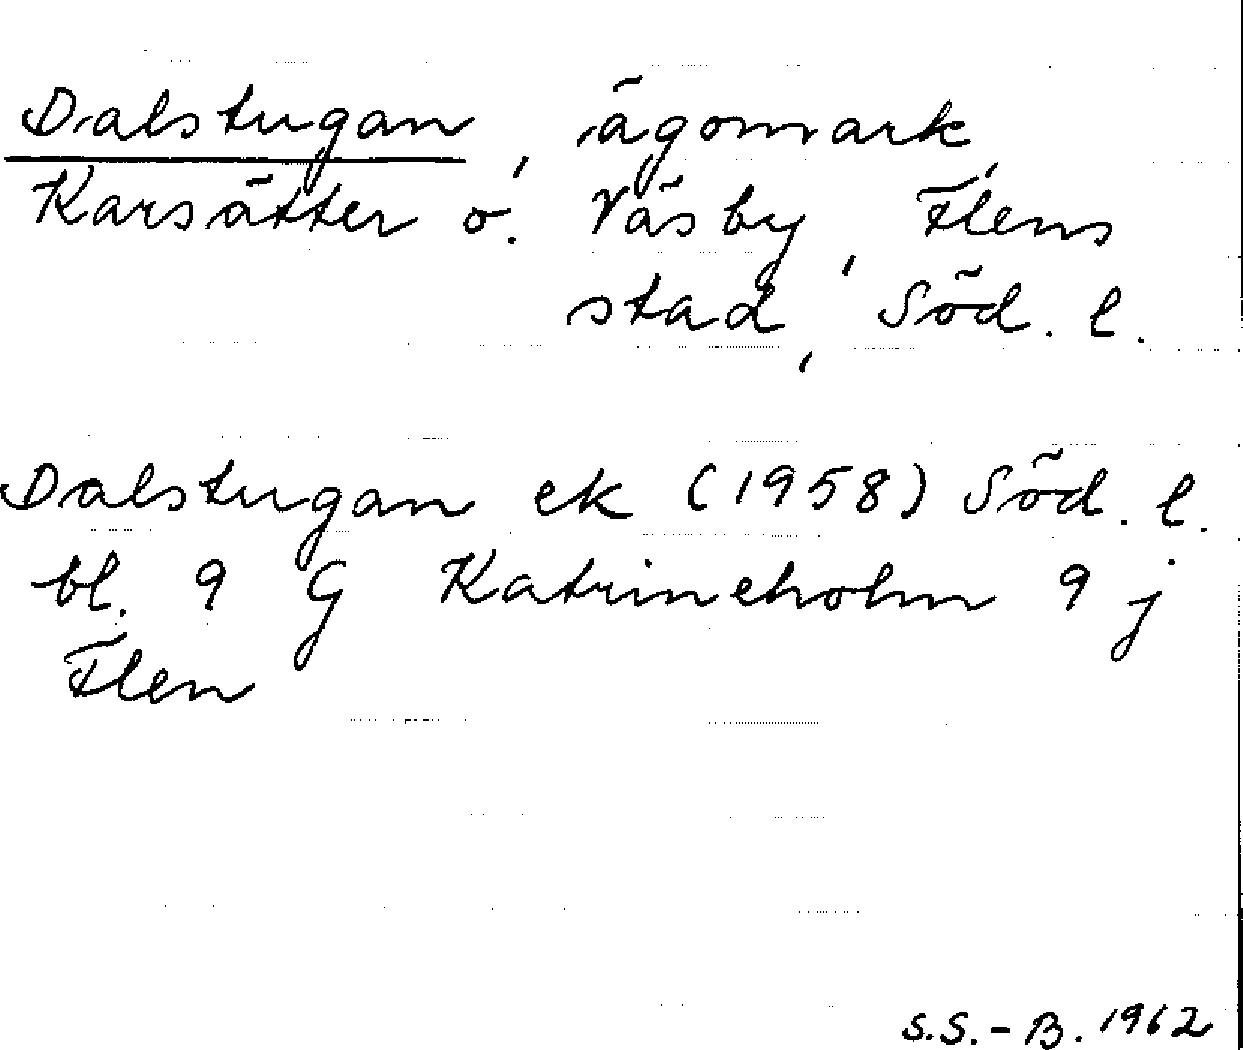 Dalstugan, ägomark,
Karsätter o. Väsby, Flens
stad, Söd. l.
Dalstugan ek (1958) Söd. l.
bl. 9 G Katrineholm 9 j
Flen
S.S.-B. 1962